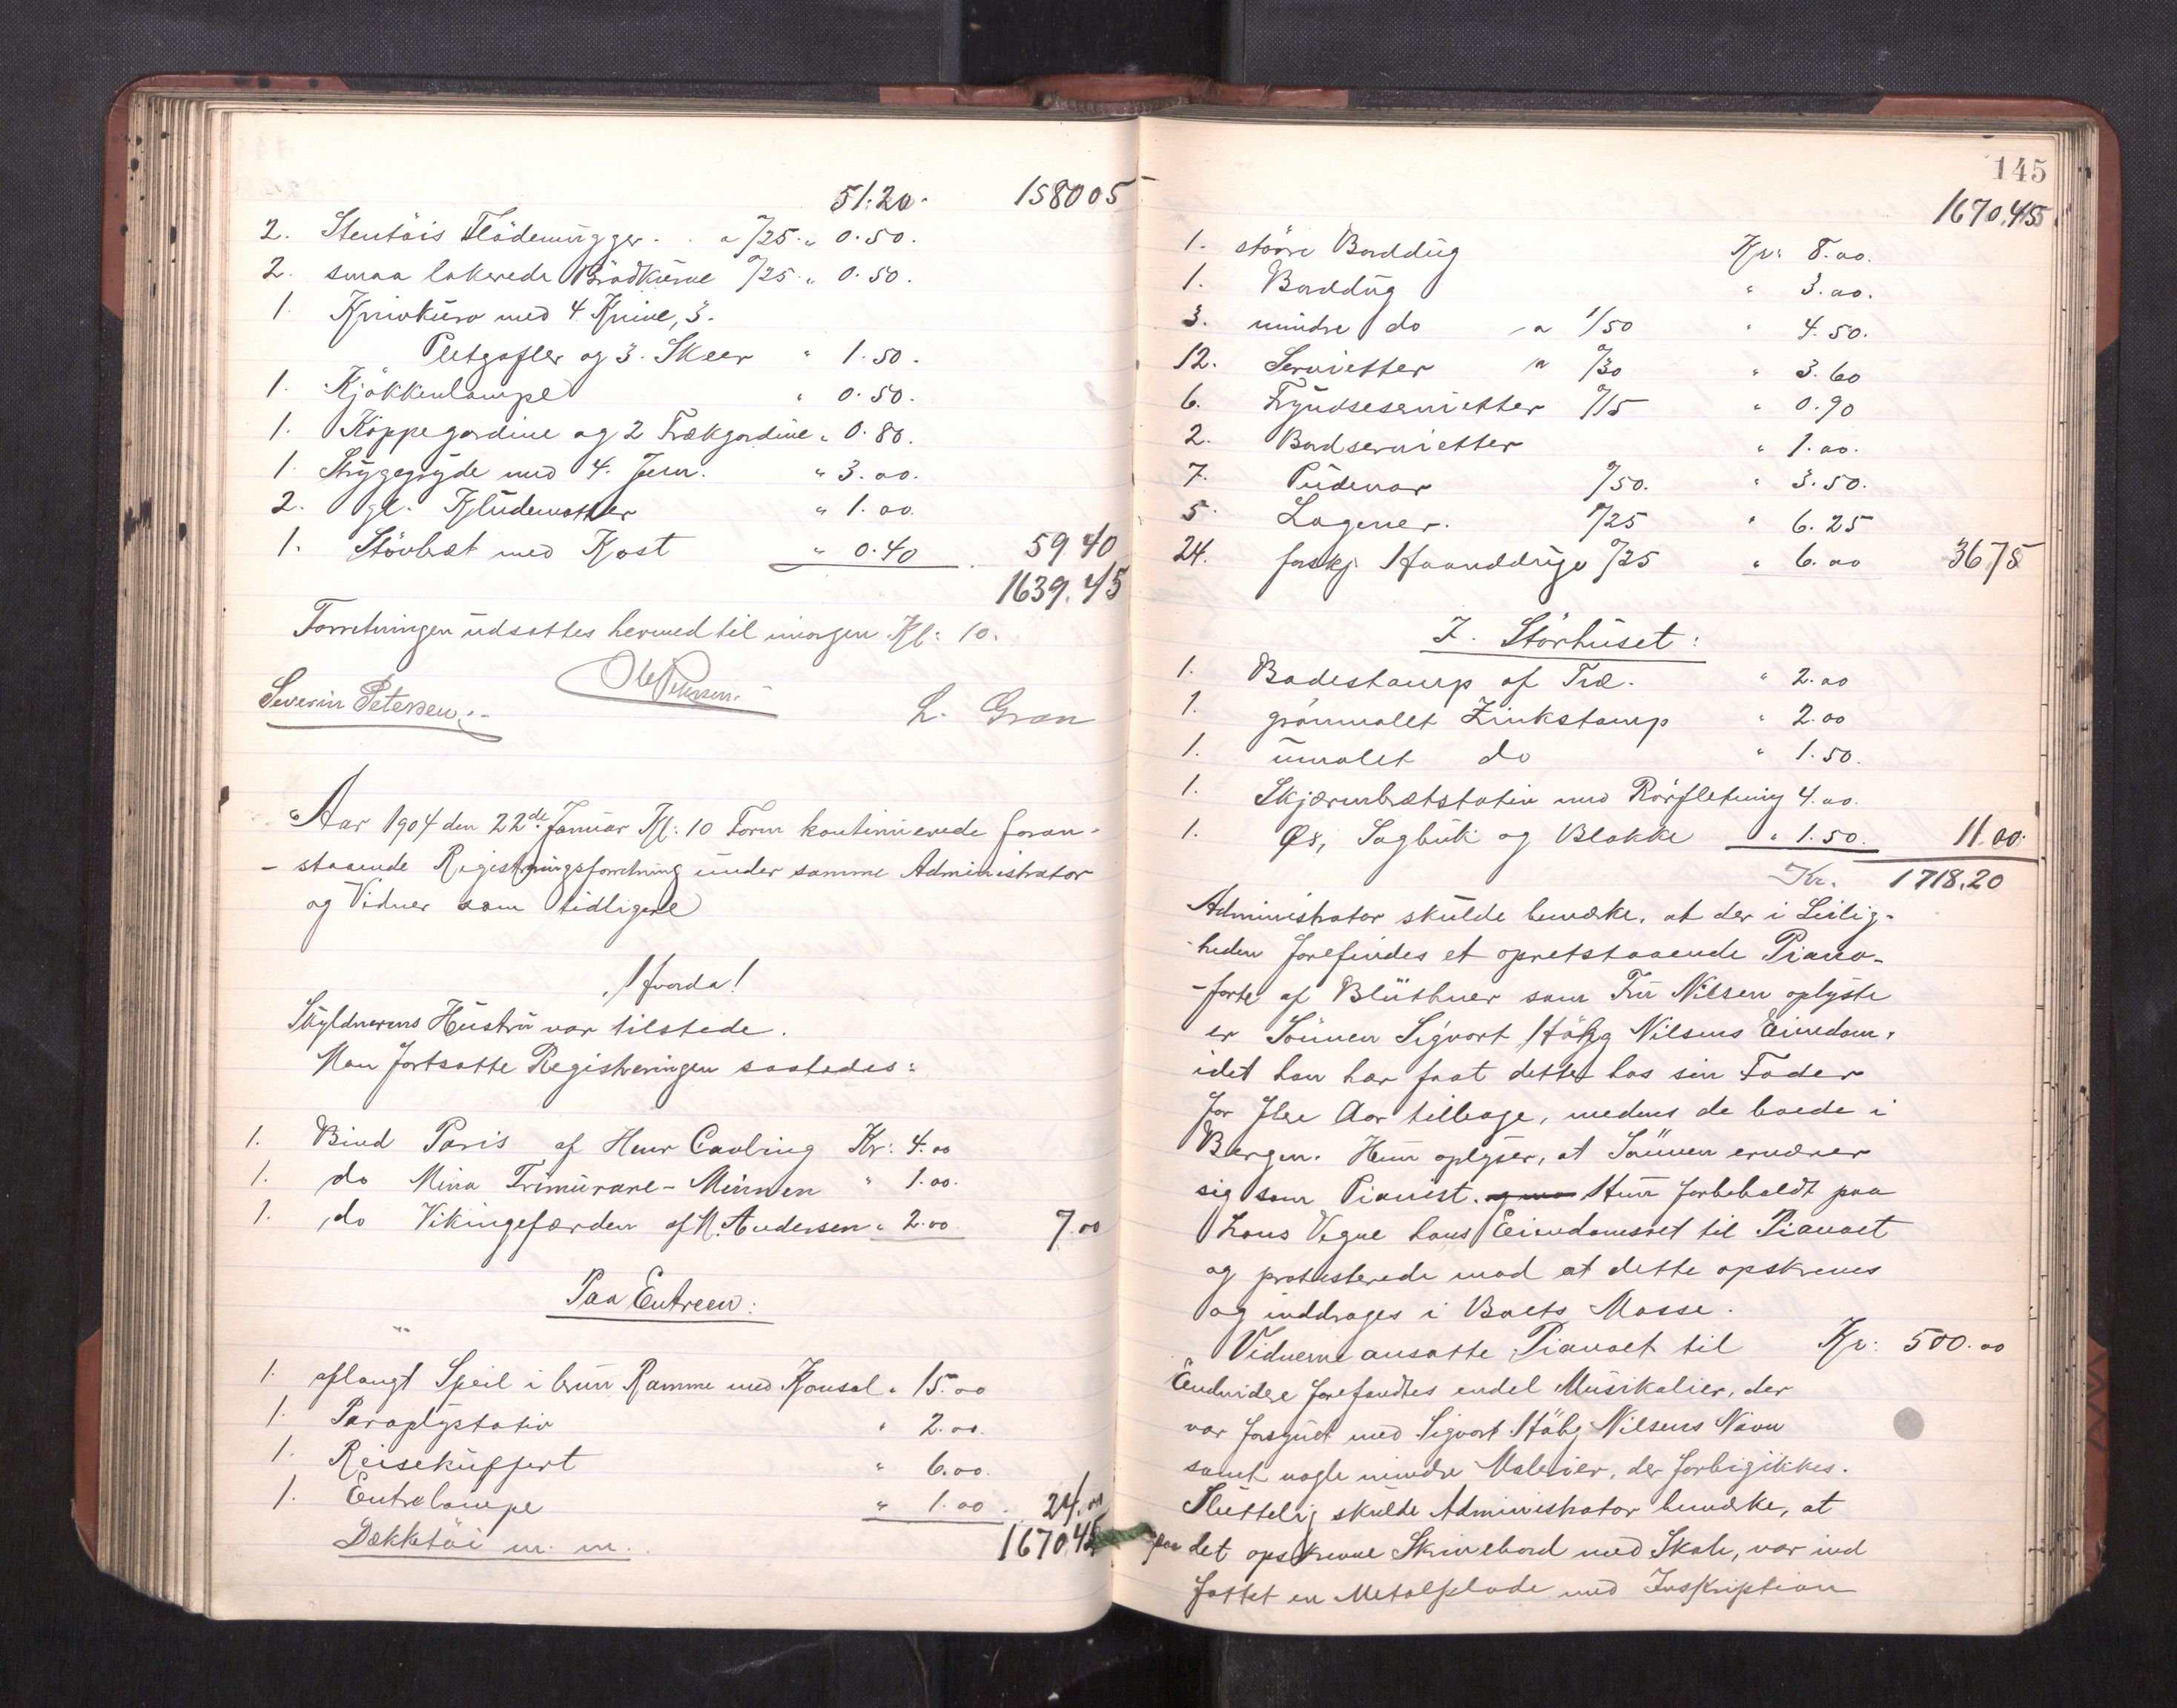 51.20. 1580 05
2. Stentöis Flödemugger. a 0/25. " 0.50.
2. smaa lakerede Brödkurve 0/25. " 0.50.
1 Knivkurv med 4 Knive, 3.
Pletgafler og 3. Skeer " 1.50.
1. Kjökkenlampe " 0.50.
1. Kappegardine og 2 Trækgardine " 0.80.
1. Strygegryde med 4. Jern. " 3.00.
2. gl. Kludematter " 1.00.
1. Stövbræt med Kost " 0.40 59 40
1639.45
Forretningen udsattes hermed til imorgen Kl: 10.
Severin Petersen. Ole Petersen. L. Gran
Aar 1904 den 22de Januar Kl: 10 Form kontinuerede foran-
- staaende Registreringsforretning under samme Administrator
og Vidner som tidligere
Hvorda!
Skyldnerens Hustru var tilstede.
Man fortsatte Registreringen saaledes:
1. Bind Paris af Henr Cavling Kr: 4.00
1. do Mina Frimurare-Minnen " 1.00.
1. do Vikingefærden af M. Andersen " 2.00. 7.00
Paa Entreen:
1. aflangt Speil i brun Ramme med Konsol " 15.00
1. Paraplystativ " 2.00.
1. Reisekuffert " 6.00.
1. Entrelampe " 1.00. 24.00
Dækketöi m. m. 1670.45
145
1670.45
1. större Borddug Kr: 8.00.
1. Borddug " 3.00.
3. mindre do a 1/50 " 4.50.
12. Servietter a 0/30 " 3.60
6. Fryndseservietter 0/15 " 0.90
2. Bordservietter " 1.00.
7. Pudevar 0/50. " 3.50.
5. Lagener. 1/25 " 6.25
24. forskj Haandduge 0/25 " 6.00 36.75
I. Störhuset:
1. Badestamp af Træ. " 2.00
1. grönmalet Zinkstamp " 2.00
1. umalet do " 1.50.
1. Skjærmbrætstativ med Rörfletning 4.00.
1. Øx, Sagbuk og Blokke " 1.50. 11.00
Kr. 1718.20
Administrator skulde bemærke, at der i Leilig-
heden forefindes et opretstaaende Piano-
-forte af Blüthner som Fru Nilsen oplyste
er Sönnen Sigvart Höbg Nilsens Eiendom,
idet han har faat dette hos sin Fader
for flere Aar tilbage, medens de boede i
Bergen. Hun oplyser, at Sönnen ernærer
sig som Pianist. Hun forbeholdt paa
hans Vegne hans Eiendomsret til Pianoet
og protesterede mod at dette opskreves
og inddrages i Boets Masse.
Vidnerne ansatte Pianoet til Kr: 500.00
Endvidere forefandtes endel Musikalier, der
var forsynet med Sigvart Höbg Nilsens Navn
samt nogle mindre Malerier, der forbigikkes.
Sluttelig skulde Administrator bemærke, at
paa det opskrevne Skrivebord med Skab, var ind
fattet en Metalplade med Inskription